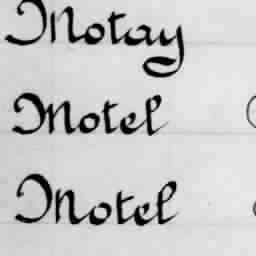 Motay
Motel
Motel